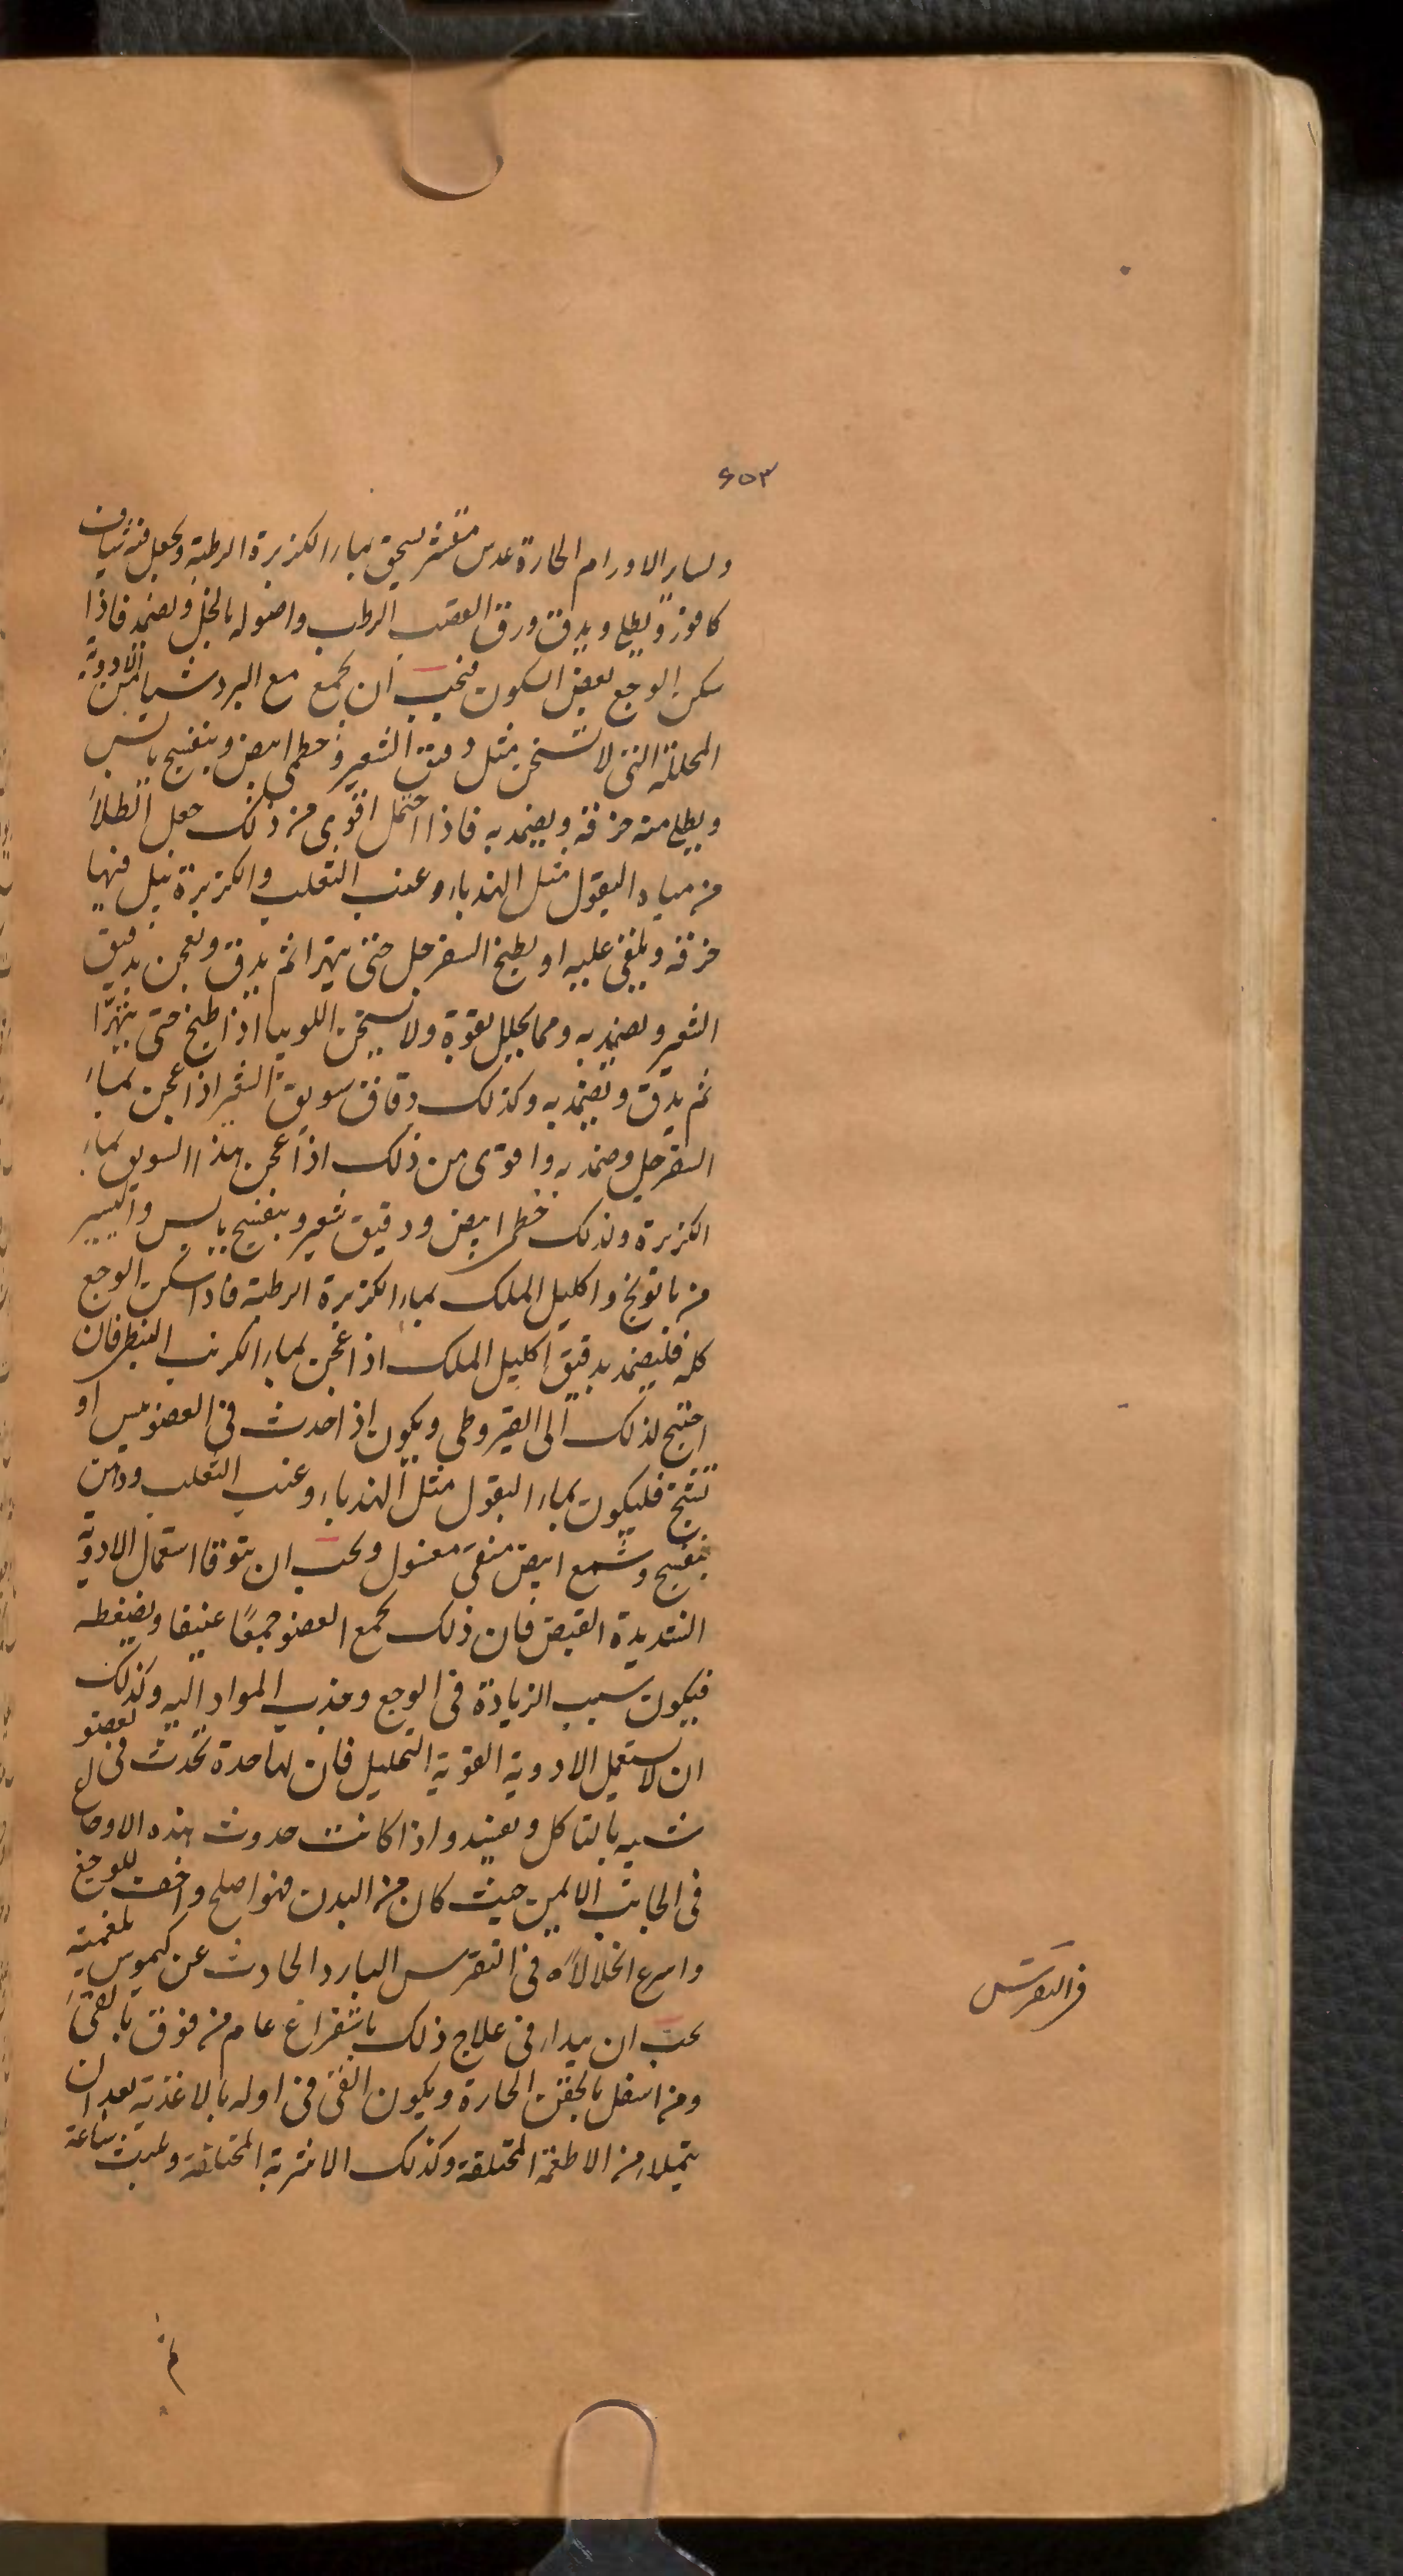 ٤٥٣
ولسایر الاورام الحارة عدس مقشر یسحق بماء الکزبرة الرطبة ویجعل فیه شیاف
کافور ویطلی ویدق ورق القصب الرطب واصوله بالخل ویضمد فاذا
سکن الوجع بعض السکون فیجب ان یجمع مع البرد شیا من الادویة
المحللة التی لا تسخن مثل دقیق الشعیر وخطمی ابیض وبنفسج یابس
ویطلی منه خرقة ویضمد به فاذا احتمل اقوی من ذلک جعل الطلاء
من میاه البقول مثل الهندباء وعنب الثعلب والکزبرة تبل فیها
خرقة ویلقی علیه او یطبخ السفرجل حتی یتهرا ثم یدق ویعجن بدقیق
الشعیر ویضمد به ومما یحلل بقوة ولا یسخن اللوبیا اذا طبخ حتی یتهرا
ثم یدق ویضمد به وکذلک دقاق سویق الشعیر اذا عجن بماء
السفرجل وضمد به واقوی من ذلک اذا عجن هذا السویق بماء
الکزبرة وکذلک خطمی ابیض ودقیق شعیر وبنفسج یابس والیسیر
من بابونج واکلیل الملک بماء الکزبرة الرطبة فاذا سکن الوجع
کله فلیضمد بدقیق اکلیل الملک اذا عجن بماء الکرنب النبطی فان
احتیج لذلک الی القیروطی ویکون اذا حدث فی العضو یبس او
تشنج فلیکون بماء البقول مثل الهندباء وعنب الثعلب ودهن
بنفسج وشمع ابیض منقی مغسول ویجب ان یتوقا استعمال الادویة
الشدیدة القبض فان ذلک یجمع العضو جمعًا عنیفا ویضغطه
فیکون سبب الزیادة فی الوجع وجذب المواد الیه وکذلک
ان لا یستعمل الادویة القویة التحلیل فان لها حدة تحدث فی العضو
شبیه بالتاکل واذا کانت حدوث هذه الاوجاع
فی الجانب الایمن حیث کان من البدن فهو اصلح واخف للوجع
واسرع انحلالا ه فی النقرس البارد الحادث عن کیموس بلغمیة
یجب ان یبدا فی علاج ذلک باستفراغ عام من فوق بالقئ
ومن اسفل بالحقن الحارة ویکون القئ فی اوله بالاغذیة بعد ان
یتملا من الاطعمة المختلفة وکذلک الاشربة المختلفة ویلبث ساعة
فی النقرس
ثم